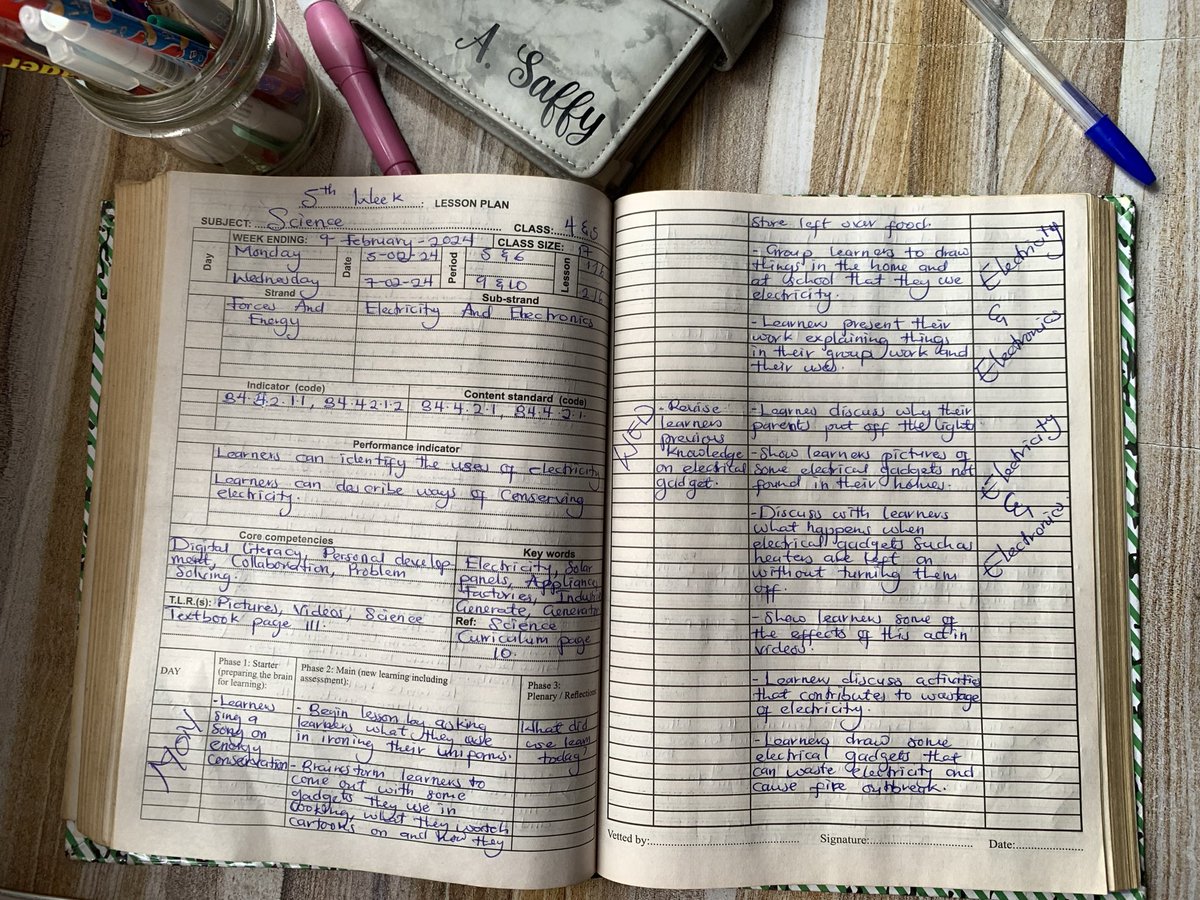 A. Saffy
5th Week LESSON PLAN
SUBJECT: Science CLASS: 4 & 5
WEEK ENDING: 9 February - 2024 CLASS SIZE: 17
Day Monday Date 5-02-24 Period 5 & 6 Lesson
Wednesday 7-02-24 9 & 10
Strand Sub-strand
Forces And Electricity And Electronics
Energy
Indicator (code) Content standard (code)
B4.4.2.1.1, B4.4.2.1.2 B4.4.2.1, B4.4.2.1.
Performance indicator
Learners can identify the uses of electricity
Learners can describe ways of Conserving
electricity.
Core competencies
Digital literacy, Personal develop
ment, Collaboration, Problem
Solving.
Key words
Electricity, Solar
panels, Appliance
factories,
Generate, Generator
T.L.R.(s): Pictures, Videos, Science
Textbook page 111.
Ref: Science
Curriculum page
10.
DAY
Phase 1: Starter
(preparing the brain
for learning):
Phase 2: Main (new learning including
assessment):
Phase 3:
Plenary / Reflections
MON
- Learners
sing a
song on
energy
conservation
- Begin lesson by asking
learners what they use
in ironing their uniforms.
- Brainstorm learners to
come out with some
gadgets they use in
cooking, what they watch
cartoons on and how they
What did
we learn
today
store left over food.
- Group learners to draw
things in the home and
at school that they use
electricity.
- Learners present their
work explaining things
in their group work and
their uses.
Electricity
&
Electronics
WED
- Revise
learners
previous
knowledge
on electrical
gadget.
- Learners discuss why their
parents put off the light
- Show learners pictures of
some electrical gadgets not
found in their homes.
- Discuss with learners
what happens when
electrical gadgets such as
heaters are left on
without turning them
off.
- Show learners some of
the effects of this act in
videos.
- Learners discuss activities
that contributes to wastage
of electricity.
- Learners draw some
electrical gadgets that
can waste electricity and
cause fire outbreak.
Electricity
&
Electronics
Vetted by: Signature: Date: